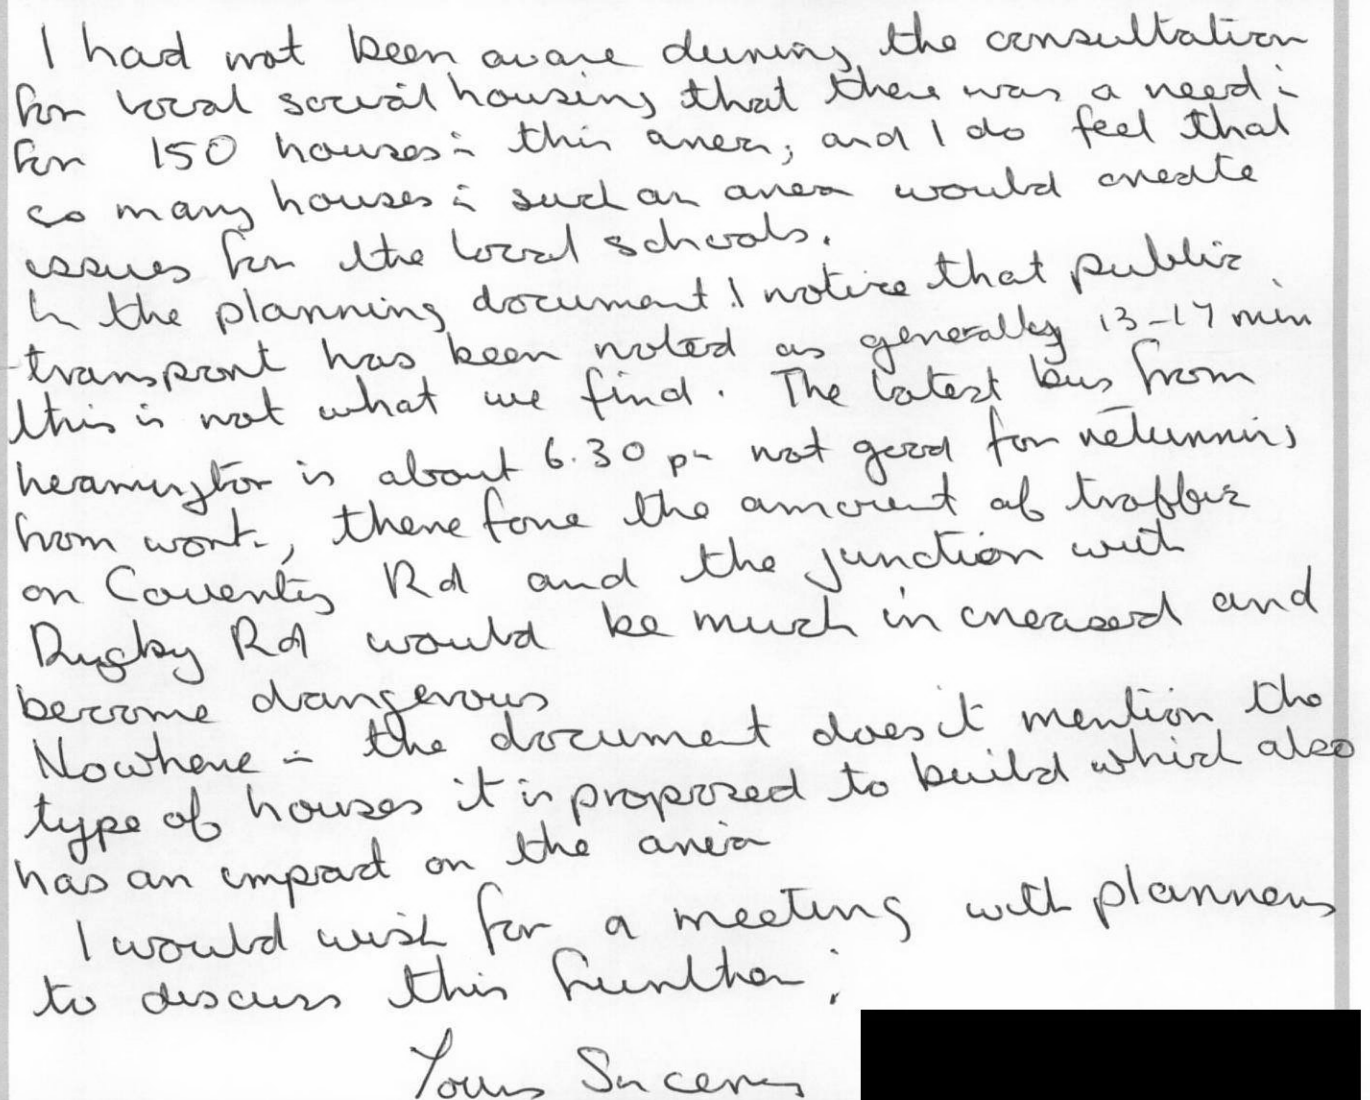 I had not been aware during the consultation
for local social housing that there was a need in
for 150 houses in this area, and I do feel that
so many houses in such an area would create
issues for the local schools.
In the planning document I notice that public
transport has been noted as generally 13-17 min
this is not what we find. The latest bus from
leamington is about 6.30 pm not good for returning
from work, therefore the amount of traffic
on Coventry Rd and the junction with
Rugby Rd would be much increased and
become dangerous
Nowhere in the document does it mention the
type of houses it is proposed to build which also
has an impact on the area
I would wish for a meeting with planners
to discuss this further.
Yours Sincerely